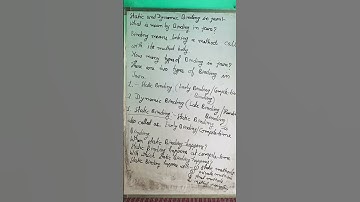 Static and Dynamic Binding in java:-
What is mean by Binding in java?
Binding means linking a method call
with its method body
How many types of Binding in java?
There are two types of Binding in
Java
1. - Static Binding (Early Binding/Compile time
Binding)
2. Dynamic Binding (Late Binding/
Binding)
1. Static Binding:- Static Binding
also called as Early Binding/Compile time
Binding
When Static Binding happens?
Static Binding happens at compile time
With which Static Binding happens?
Static Binding happens with - 1) Static methods
private methods
final methods